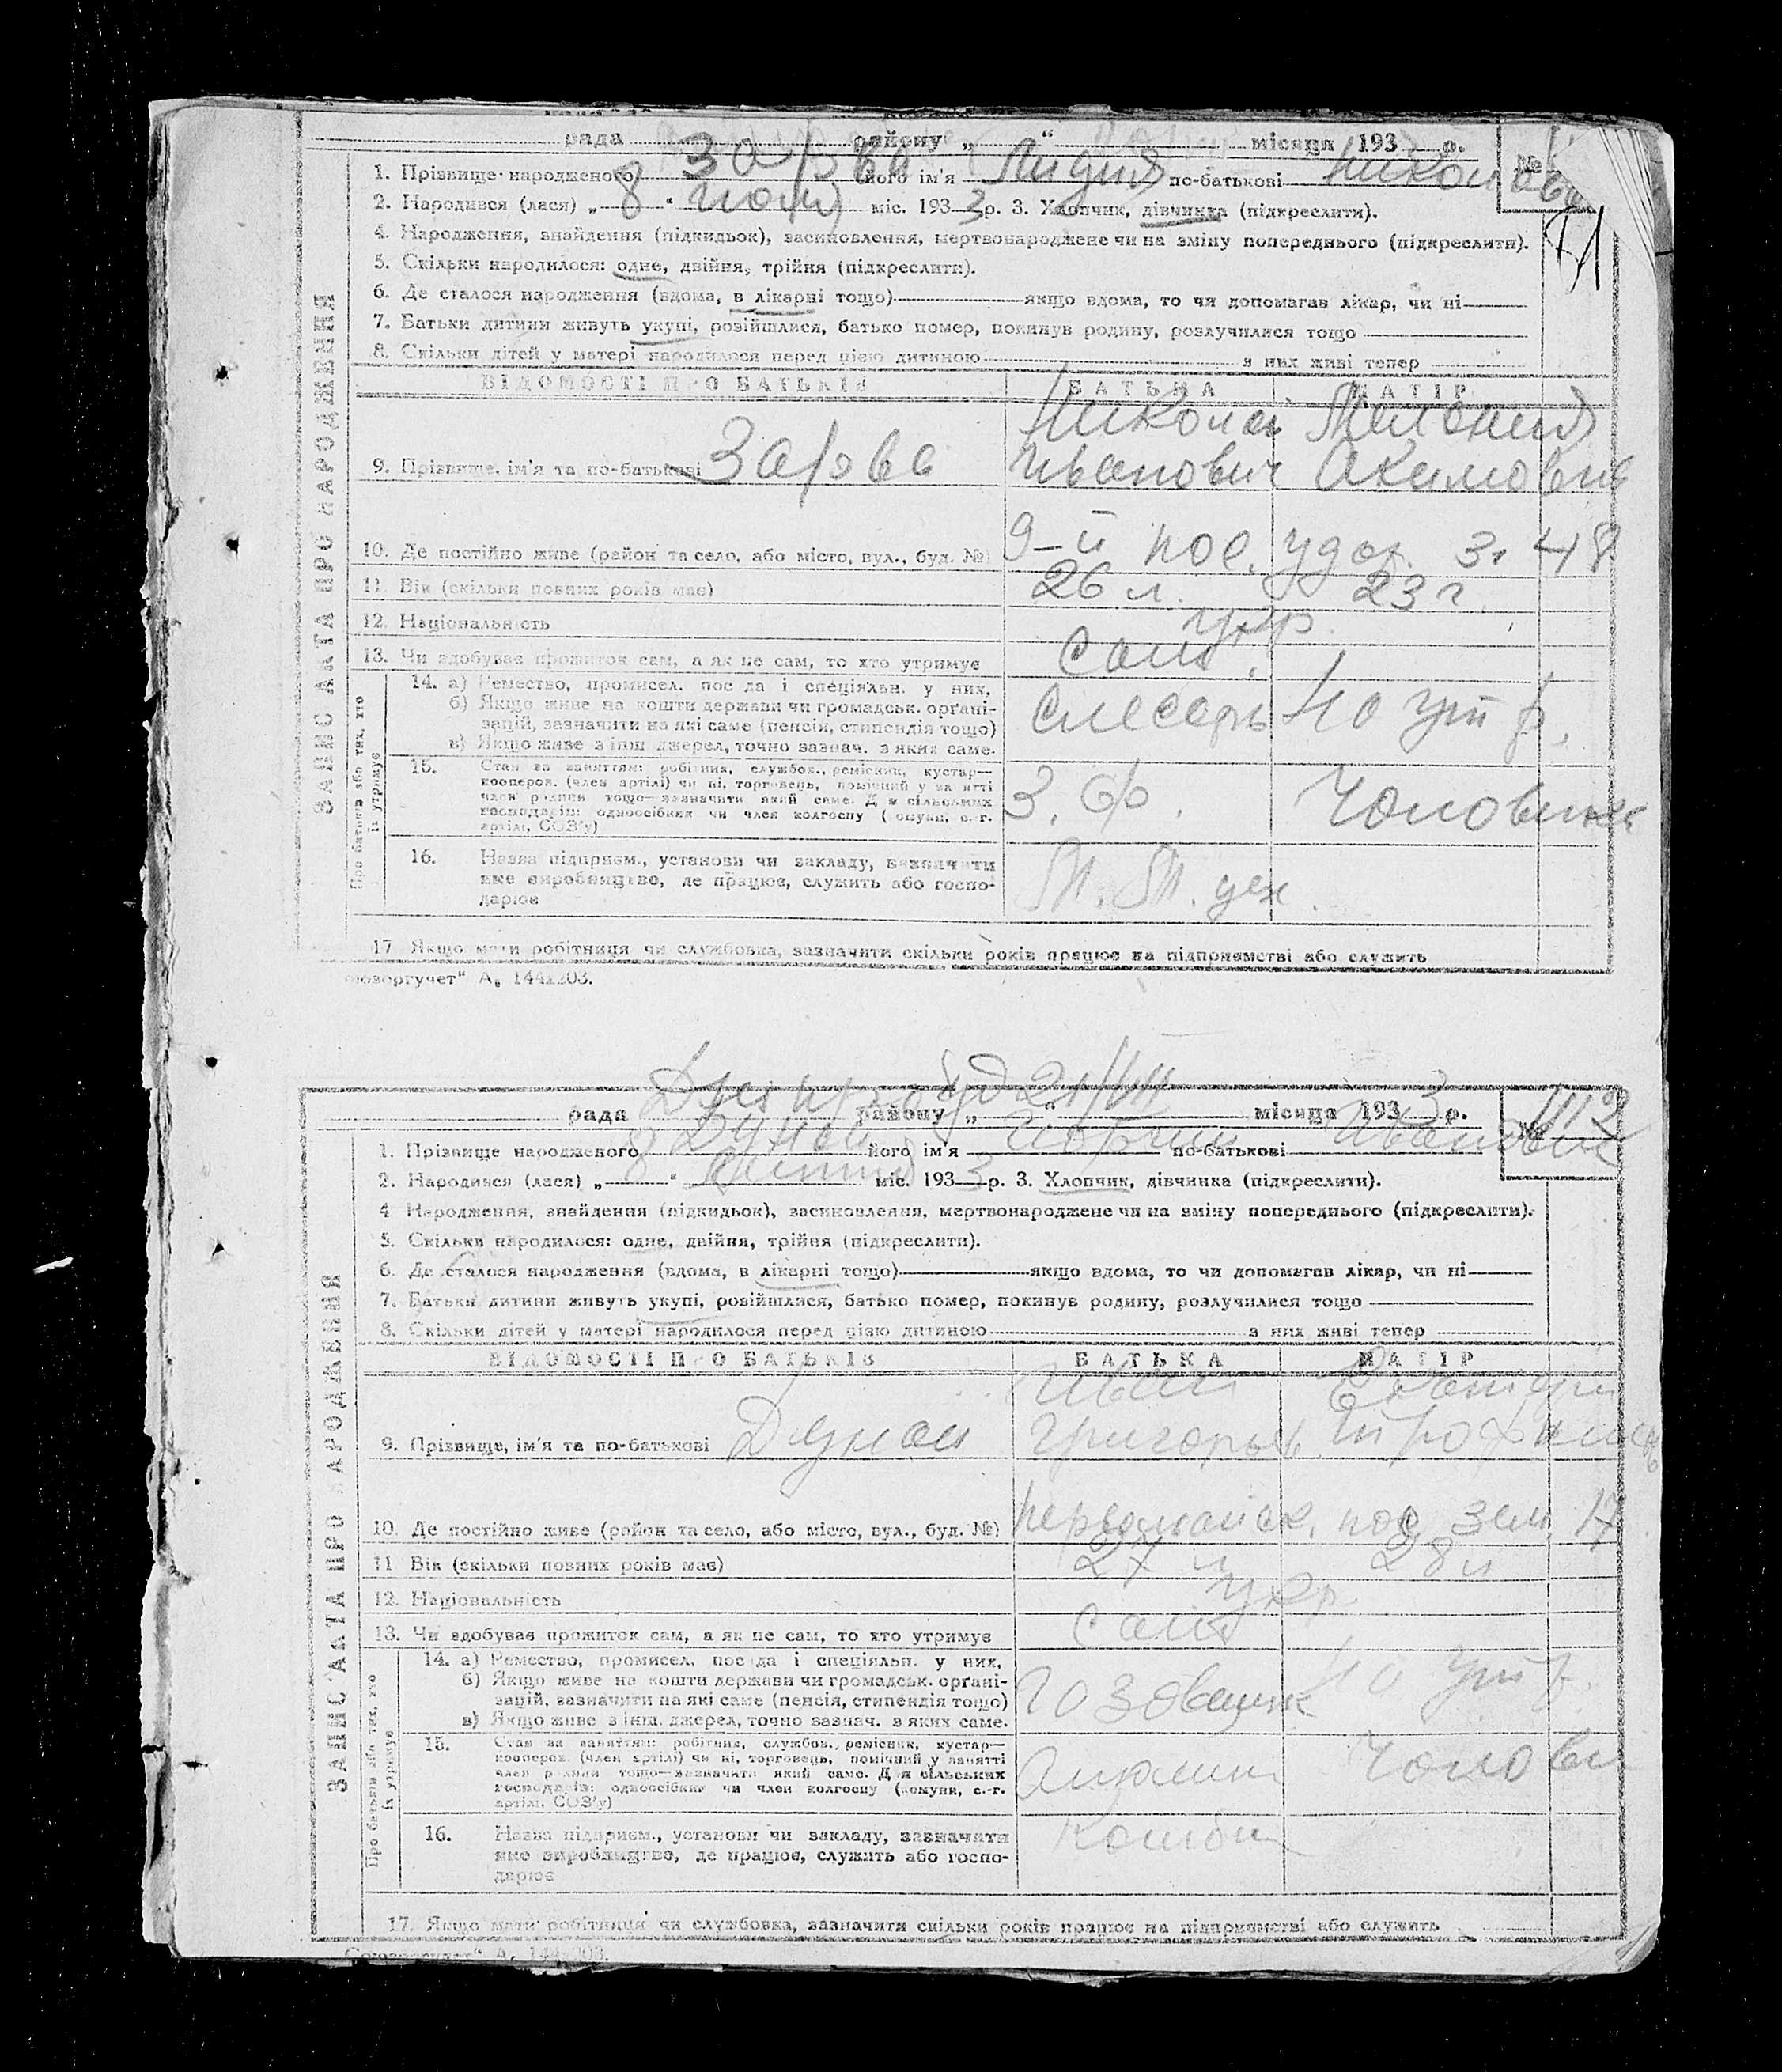 рада району „ “ місяця 193 р.
№
1. Прізвище народженого його ім'я Лидия по-батькові
2. Народився (лася) „ 8 “ міс. 193 3 р. 3. Хлопчик, дівчинка (підкреслити).
71
4. Народження, знайдення (підкидьок), засиновлення, мертвонароджене чи на зміну попереднього (підкреслити).
5. Скільки народилося: одне, двійня, трійня (підкреслити).
6. Де сталося народження (вдома, в лікарні тощо) якщо вдома, то чи допомагав лікар, чи ні
7. Батьки дитини живуть укупі, розійшлися, батько помер, покинув родину, розлучилися тощо
8. Скільки дітей у матері народилося перед цією дитиною з них живі тепер
ЗАПИС АКТА ПРО НАРОДЖЕННЯ
ВІДОМОСТІ ПРО БАТЬКІВ БАТЬКА МАТІР
Николай Мелания
9. Прізвище, ім'я та по-батькові Иванович Акимовна
10. Де постійно живе (район та село, або місто, вул., буд. №) 9-й пос. удар. 3. 48
11 Вік (скільки повних років має) 26 л. 23 г.
12. Національність укр.
13. Чи здобуває прожиток сам, а як не сам, то хто утримує сам
Про батьків або тих, хто їх утримує
14. а) Ремество, промисел, посада і спеціяльн. у них,
б) Якщо живе на кошти держави чи громадськ. орґані-
зацій, зазначити на які саме (пенсія, стипендія тощо) слесарь на ут р.
в) Якщо живе з інш. джерел, точно зазнач. з яких саме.
15. Стан за заняттям: робітник, службов., ремісник, кустар—
кооперов. (член артілі) чи ні, торговець, помічний у занятті
член родини тощо—зазначити який саме. Для сільських
господарів: одноосібник чи член колгоспу (комуни, с.-г.
артілі, СОЗ'у)
16. Назва підприєм., установи чи закладу, зазначити
яке виробництво, де працює, служить або госпо-
дарює М. М. цех.
17. Якщо мати робітниця чи службовка, зазначити скільки років працює на підприємстві або служить
Союзоргучет“ А. 144х203.
21/VIII
рада району „ “ місяця 193 3 р.
№ 1113
1. Прізвище народженого Дунай його ім'я по-батькові Иванович
2. Народився (лася) „ 8 “ міс. 193 3 р. 3. Хлопчик, дівчинка (підкреслити).
4 Народження, знайдення (підкидьок), засиновлення, мертвонароджене чи на зміну попереднього (підкреслити).
5. Скільки народилося: одне, двійня, трійня (підкреслити).
6. Де сталося народження (вдома, в лікарні тощо) якщо вдома, то чи допомагав лікар, чи ні
7. Батьки дитини живуть укупі, розійшлися, батько помер, покинув родину, розлучилися тощо
8. Скільки дітей у матері народилося перед цією дитиною з них живі тепер
ЗАПИС АКТА ПРО НАРОДЖЕННЯ
ВІДОМОСТІ ПРО БАТЬКІВ БАТЬКА МАТІР
Иван
9. Прізвище, ім'я та по-батькові Дунай Григорьев.
10. Де постійно живе (район та село, або місто, вул., буд. №) первомайск. пос. зем. 17
11 Вік (скільки повних років має) 27 л 28 л
12. Національність укр.
13. Чи здобуває прожиток сам, а як не сам, то хто утримує сам
Про батьків або тих, хто їх утримує
14. а) Ремество, промисел, посада і спеціяльн. у них,
б) Якщо живе на кошти держави чи громадськ. орґані-
зацій, зазначити на які саме (пенсія, стипендія тощо) газовщик
в) Якщо живе з інш. джерел, точно зазнач. з яких саме.
15. Стан за заняттям: робітник, службов., ремісник, кустар—
кооперов. (член артілі) чи ні, торговець, помічний у занятті
член родини тощо—зазначити який саме. Для сільських
господарів: одноосібник чи член колгоспу (комуни, с.-г.
артілі, СОЗ'у)
16. Назва підприєм., установи чи закладу, зазначити
яке виробництво, де працює, служить або госпо-
дарює
17. Якщо мати робітниця чи службовка, зазначити скільки років працює на підприємстві або служить
Союзоргучет“ А. 144х203.